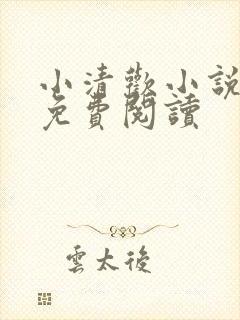 小清歡小説
免費閱讀
雲太後